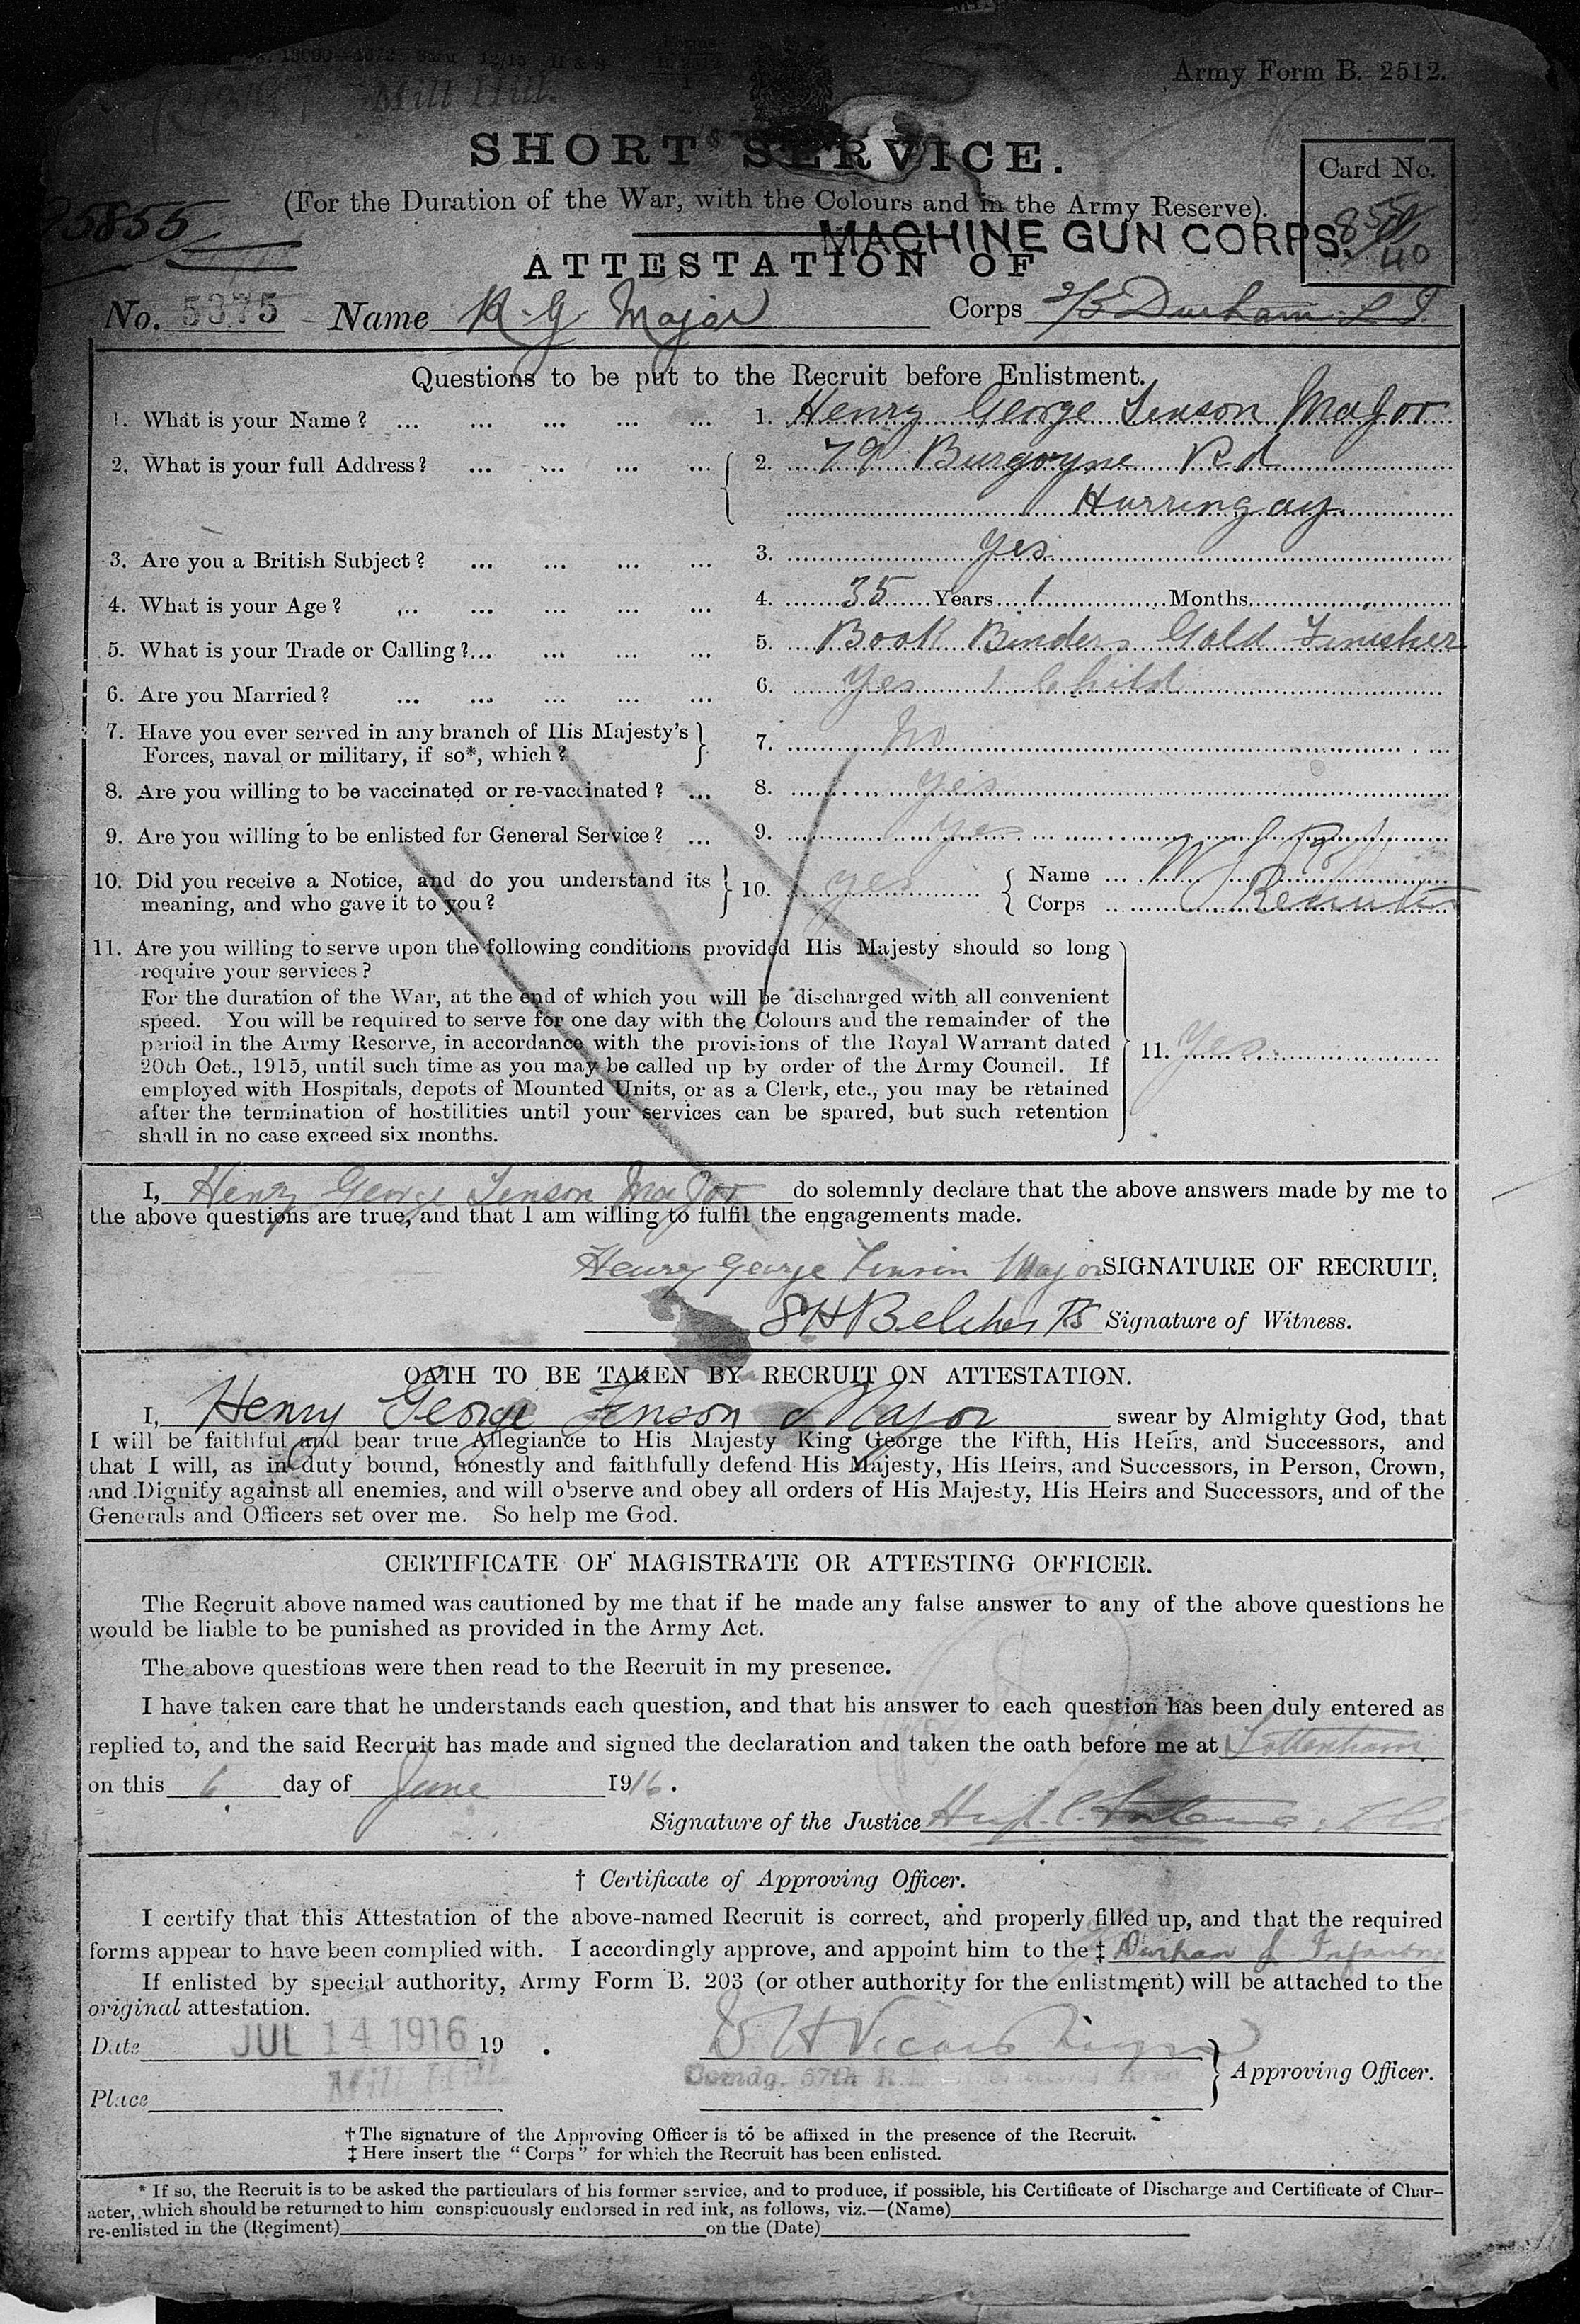 Army Form B. 2512.
Mill Hill.
SHORT SERVICE.
Card No.
(For the Duration of the War, with the Colours and in the Army Reserve).
5855
MACHINE GUN CORPS.
40
ATTESTATION OF
No. 5375 Name H. G Major Corps 2/5 Durham L I.
Questions to be put to the Recruit before Enlistment.
1. What is your Name? ... ... ... ... ... 1. Henry George Major
2. What is your full Address? ... ... ... ... 2. 79 Burgoyne Rd
Harringay
3. Are you a British Subject? ... ... ... ... 3. yes
4. What is your Age? ... ... ... ... ... 4. 35 Years 1 Months
5. What is your Trade or Calling?... ... ... ... 5. Book Binders Gold Finisher
6. Are you Married? ... ... ... ... ... 6. Yes 1 Child
7. Have you ever served in any branch of His Majesty's
Forces, naval or military, if so*, which? 7. No
8. Are you willing to be vaccinated or re-vaccinated? ... 8. yes
9. Are you willing to be enlisted for General Service? ... 9. yes
10. Did you receive a Notice, and do you understand its
meaning, and who gave it to you? 10. yes Name ...
Corps ...
11. Are you willing to serve upon the following conditions provided His Majesty should so long
require your services?
For the duration of the War, at the end of which you will be discharged with all convenient
speed. You will be required to serve for one day with the Colours and the remainder of the
period in the Army Reserve, in accordance with the provisions of the Royal Warrant dated
20th Oct., 1915, until such time as you may be called up by order of the Army Council. If
employed with Hospitals, depots of Mounted Units, or as a Clerk, etc., you may be retained
after the termination of hostilities until your services can be spared, but such retention
shall in no case exceed six months.
11. Yes
I, Henry George Major do solemnly declare that the above answers made by me to
the above questions are true, and that I am willing to fulfil the engagements made.
Henry George Major SIGNATURE OF RECRUIT.
S H Belcher Signature of Witness.
OATH TO BE TAKEN BY RECRUIT ON ATTESTATION.
I, Henry George Major swear by Almighty God, that
I will be faithful and bear true Allegiance to His Majesty King George the Fifth, His Heirs, and Successors, and
that I will, as in duty bound, honestly and faithfully defend His Majesty, His Heirs, and Successors, in Person, Crown,
and Dignity against all enemies, and will observe and obey all orders of His Majesty, His Heirs and Successors, and of the
Generals and Officers set over me. So help me God.
CERTIFICATE OF MAGISTRATE OR ATTESTING OFFICER.
The Recruit above named was cautioned by me that if he made any false answer to any of the above questions he
would be liable to be punished as provided in the Army Act.
The above questions were then read to the Recruit in my presence.
I have taken care that he understands each question, and that his answer to each question has been duly entered as
replied to, and the said Recruit has made and signed the declaration and taken the oath before me at Tottenham
on this 6 day of June 1916.
Signature of the Justice
† Certificate of Approving Officer.
I certify that this Attestation of the above-named Recruit is correct, and properly filled up, and that the required
forms appear to have been complied with. I accordingly approve, and appoint him to the ‡ Durham L Infantry
If enlisted by special authority, Army Form B. 203 (or other authority for the enlistment) will be attached to the
original attestation.
Date JUL 14 1916 19 .
Comdg. 57th
Approving Officer.
Place Mill Hill
† The signature of the Approving Officer is to be affixed in the presence of the Recruit.
‡ Here insert the "Corps" for which the Recruit has been enlisted.
* If so, the Recruit is to be asked the particulars of his former service, and to produce, if possible, his Certificate of Discharge and Certificate of Char-
acter, which should be returned to him conspicuously endorsed in red ink, as follows, viz.—(Name)
re-enlisted in the (Regiment) on the (Date)